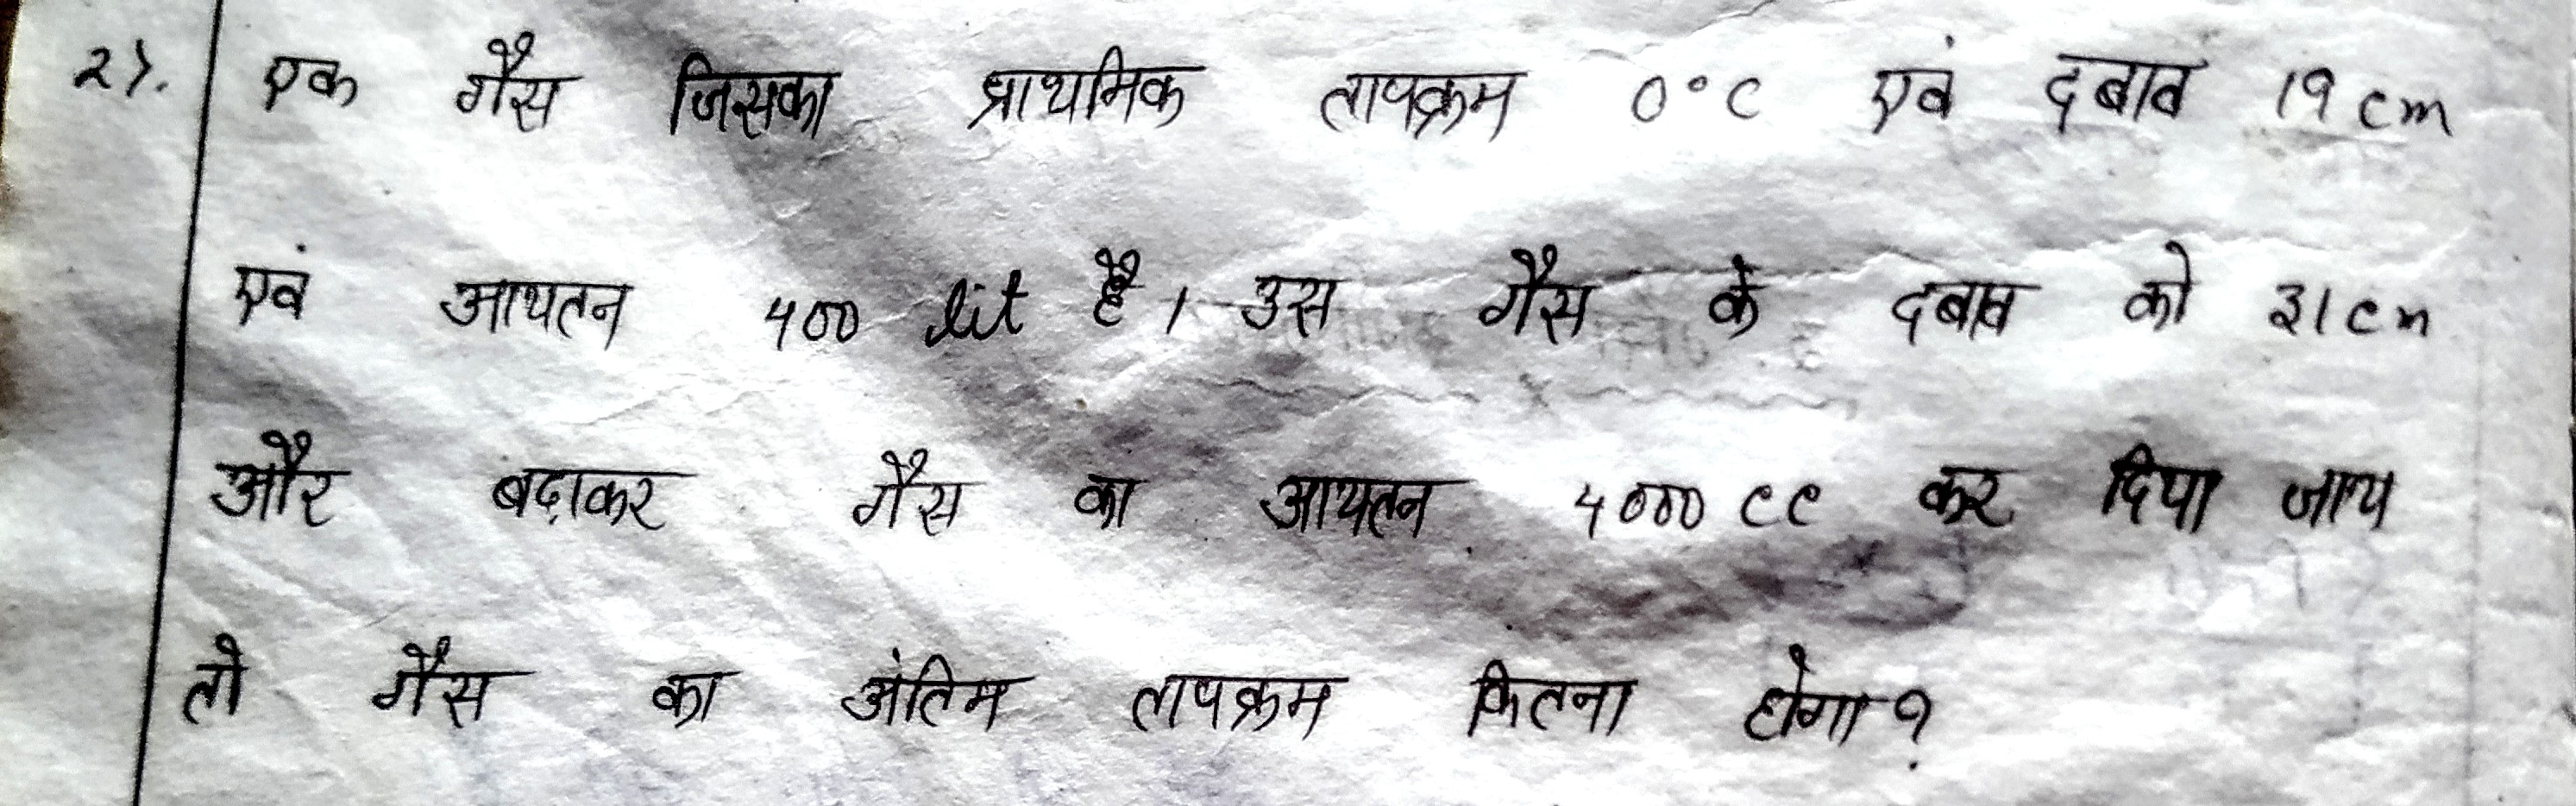 2). एक गैस जिसका प्राथमिक तापक्रम 0°C एवं दबाव 19 cm
एवं आयतन 400 lit है। उस गैस के दबाव को 31 cm
और बढ़ाकर गैस का आयतन 4000 cc कर दिया जाय
तो गैस का अंतिम तापक्रम कितना होगा?